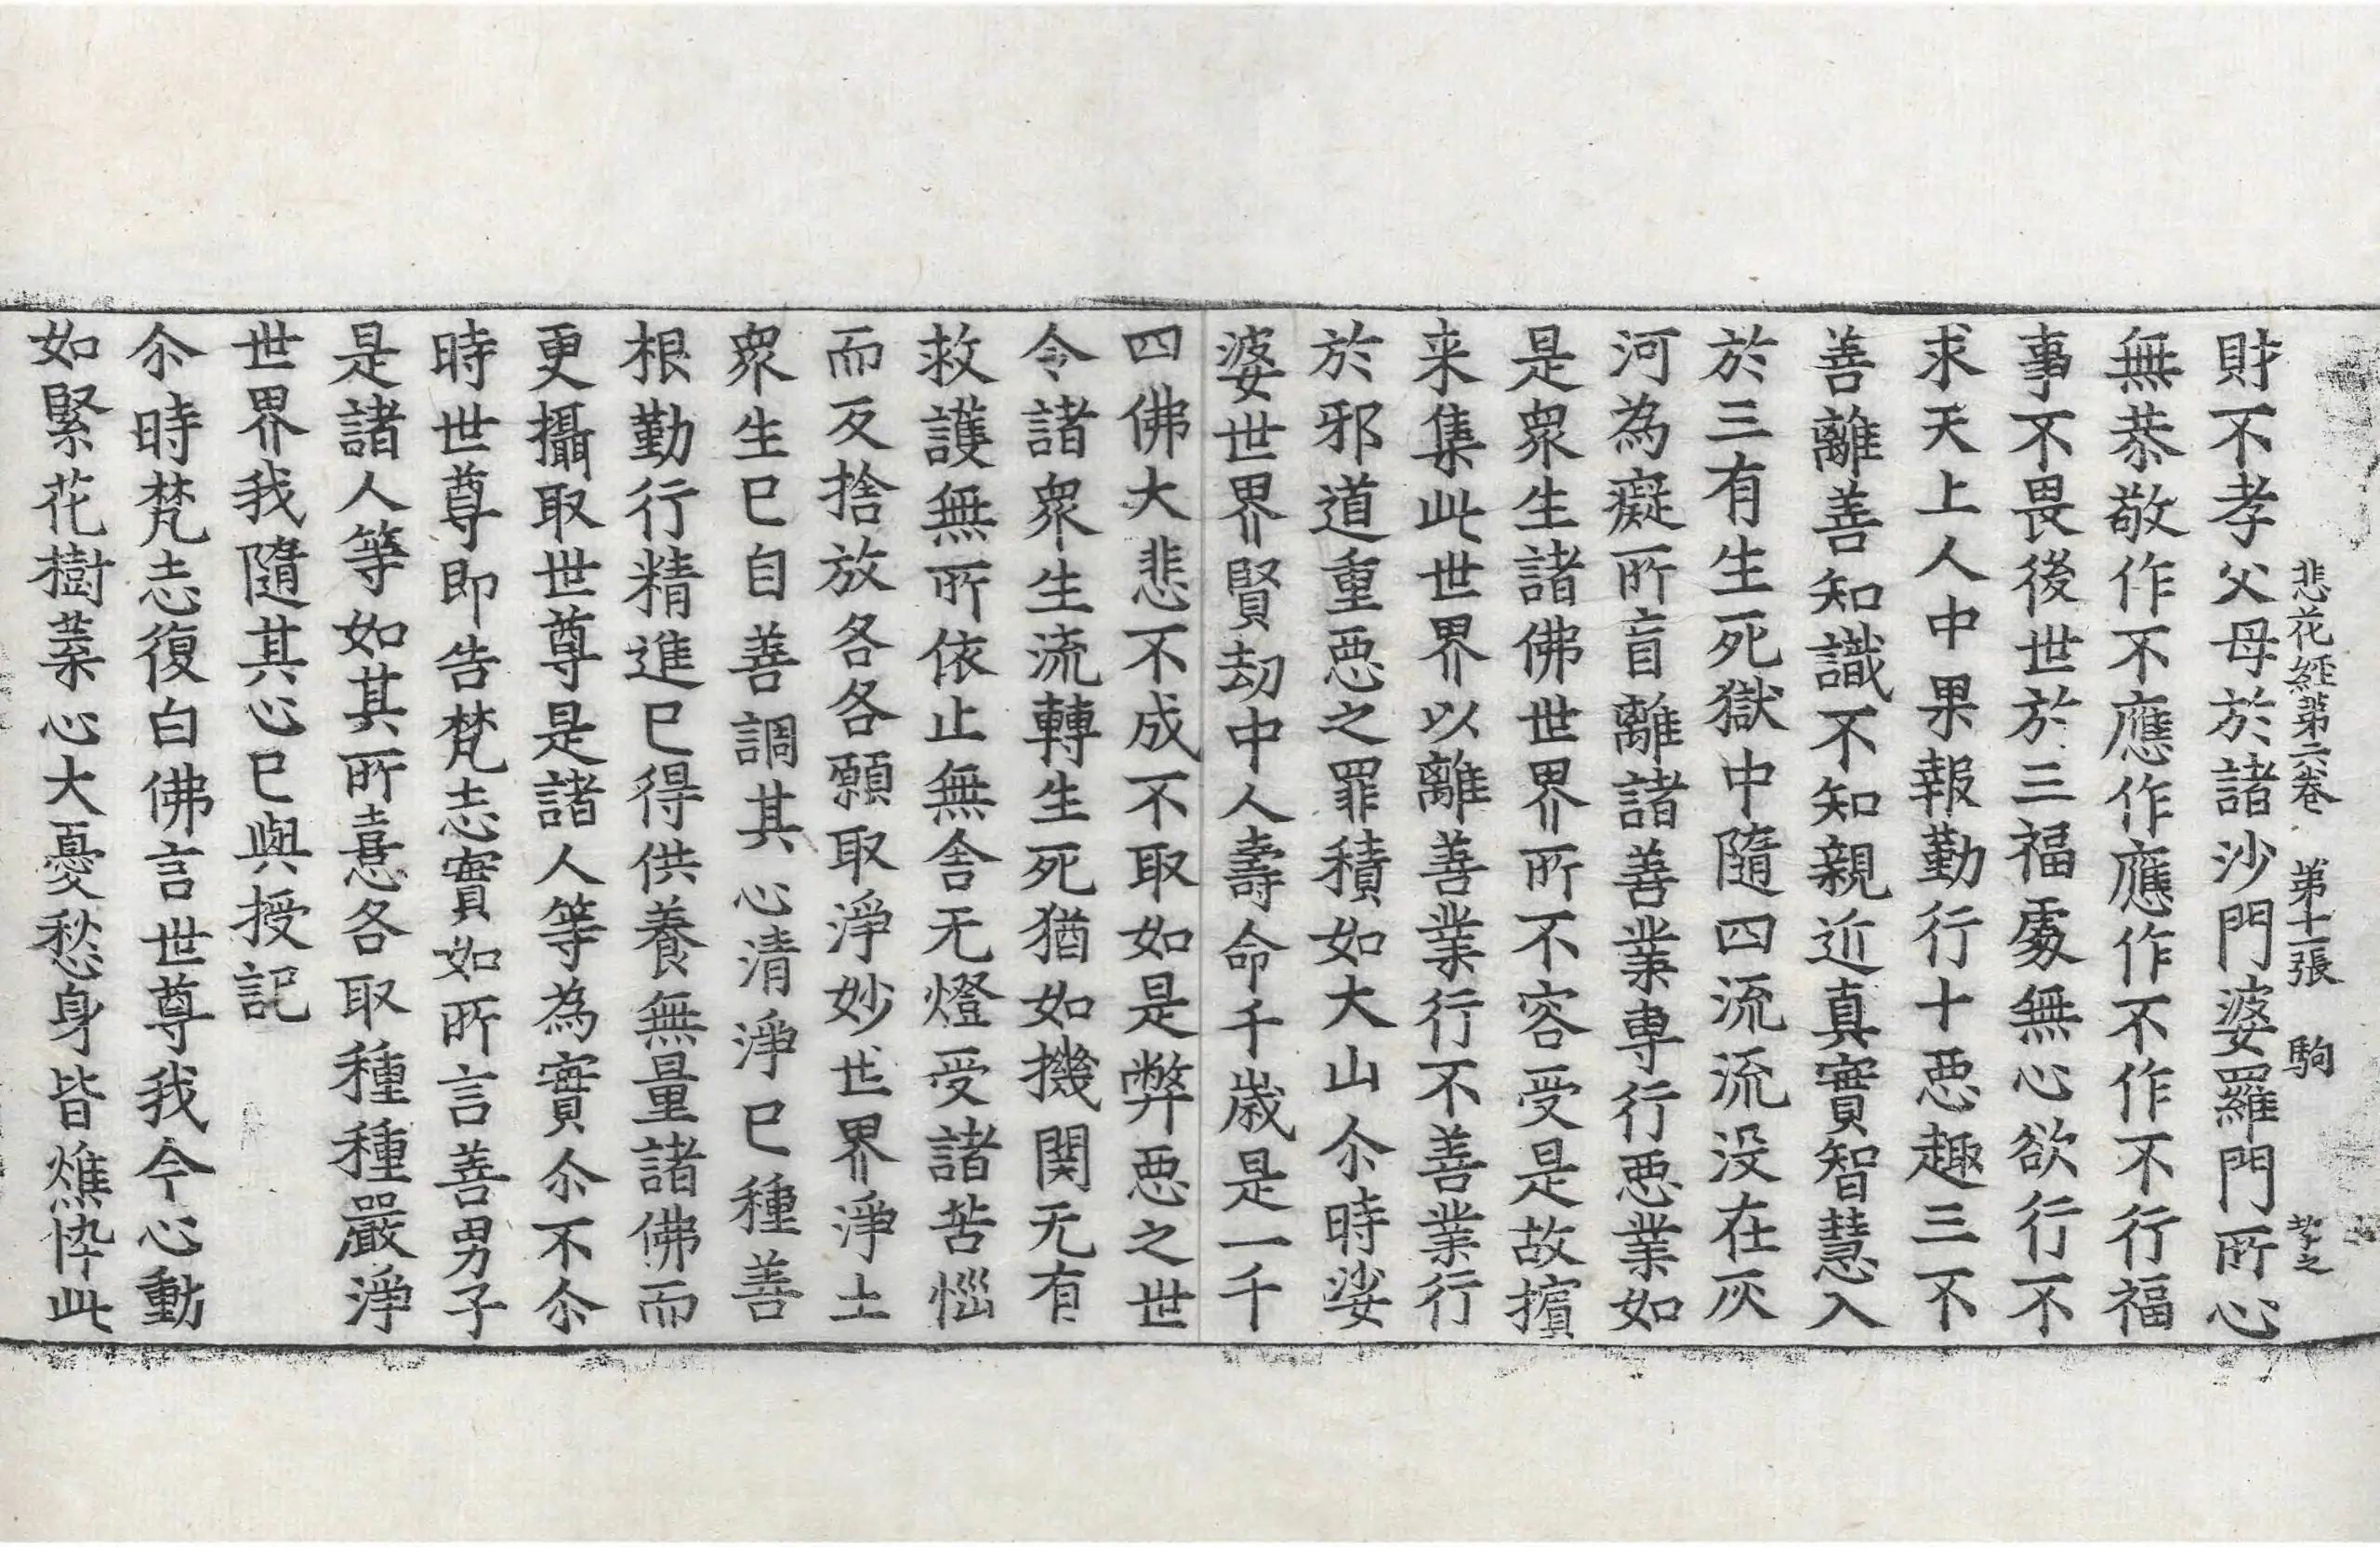 悲花經第六卷　第十一張　駒
財不孝父母於諸沙門婆羅門所心
無恭敬作不應作應作不作不行福
事不畏後世於三福處無心欲行不
求天上人中果報勤行十惡趣三不
善離善知識不知親近真實智慧入
於三有生死獄中隨四流流没在灰
河為癡所盲離諸善業專行惡業如
是衆生諸佛世界所不容受是故擯
来集此世界以離善業行不善業行
於邪道重惡之罪積如大山尒時娑
婆世界賢劫中人壽命千歲是一千
四佛大悲不成不取如是弊惡之世
令諸衆生流轉生死猶如機関无有
救護無所依止無舍无燈受諸苦惱
而反捨放各各願取淨妙世界淨土
衆生已自善調其心清淨已種善
根勤行精進已得供養無量諸佛而
更攝取世尊是諸人等為實尒不尒
時世尊即告梵志實如所言善男子
是諸人等如其所憙各取種種嚴淨
世界我隨其心已與授記
尒時梵志復白佛言世尊我今心動
如緊花樹葉心大憂愁身皆燋悴此